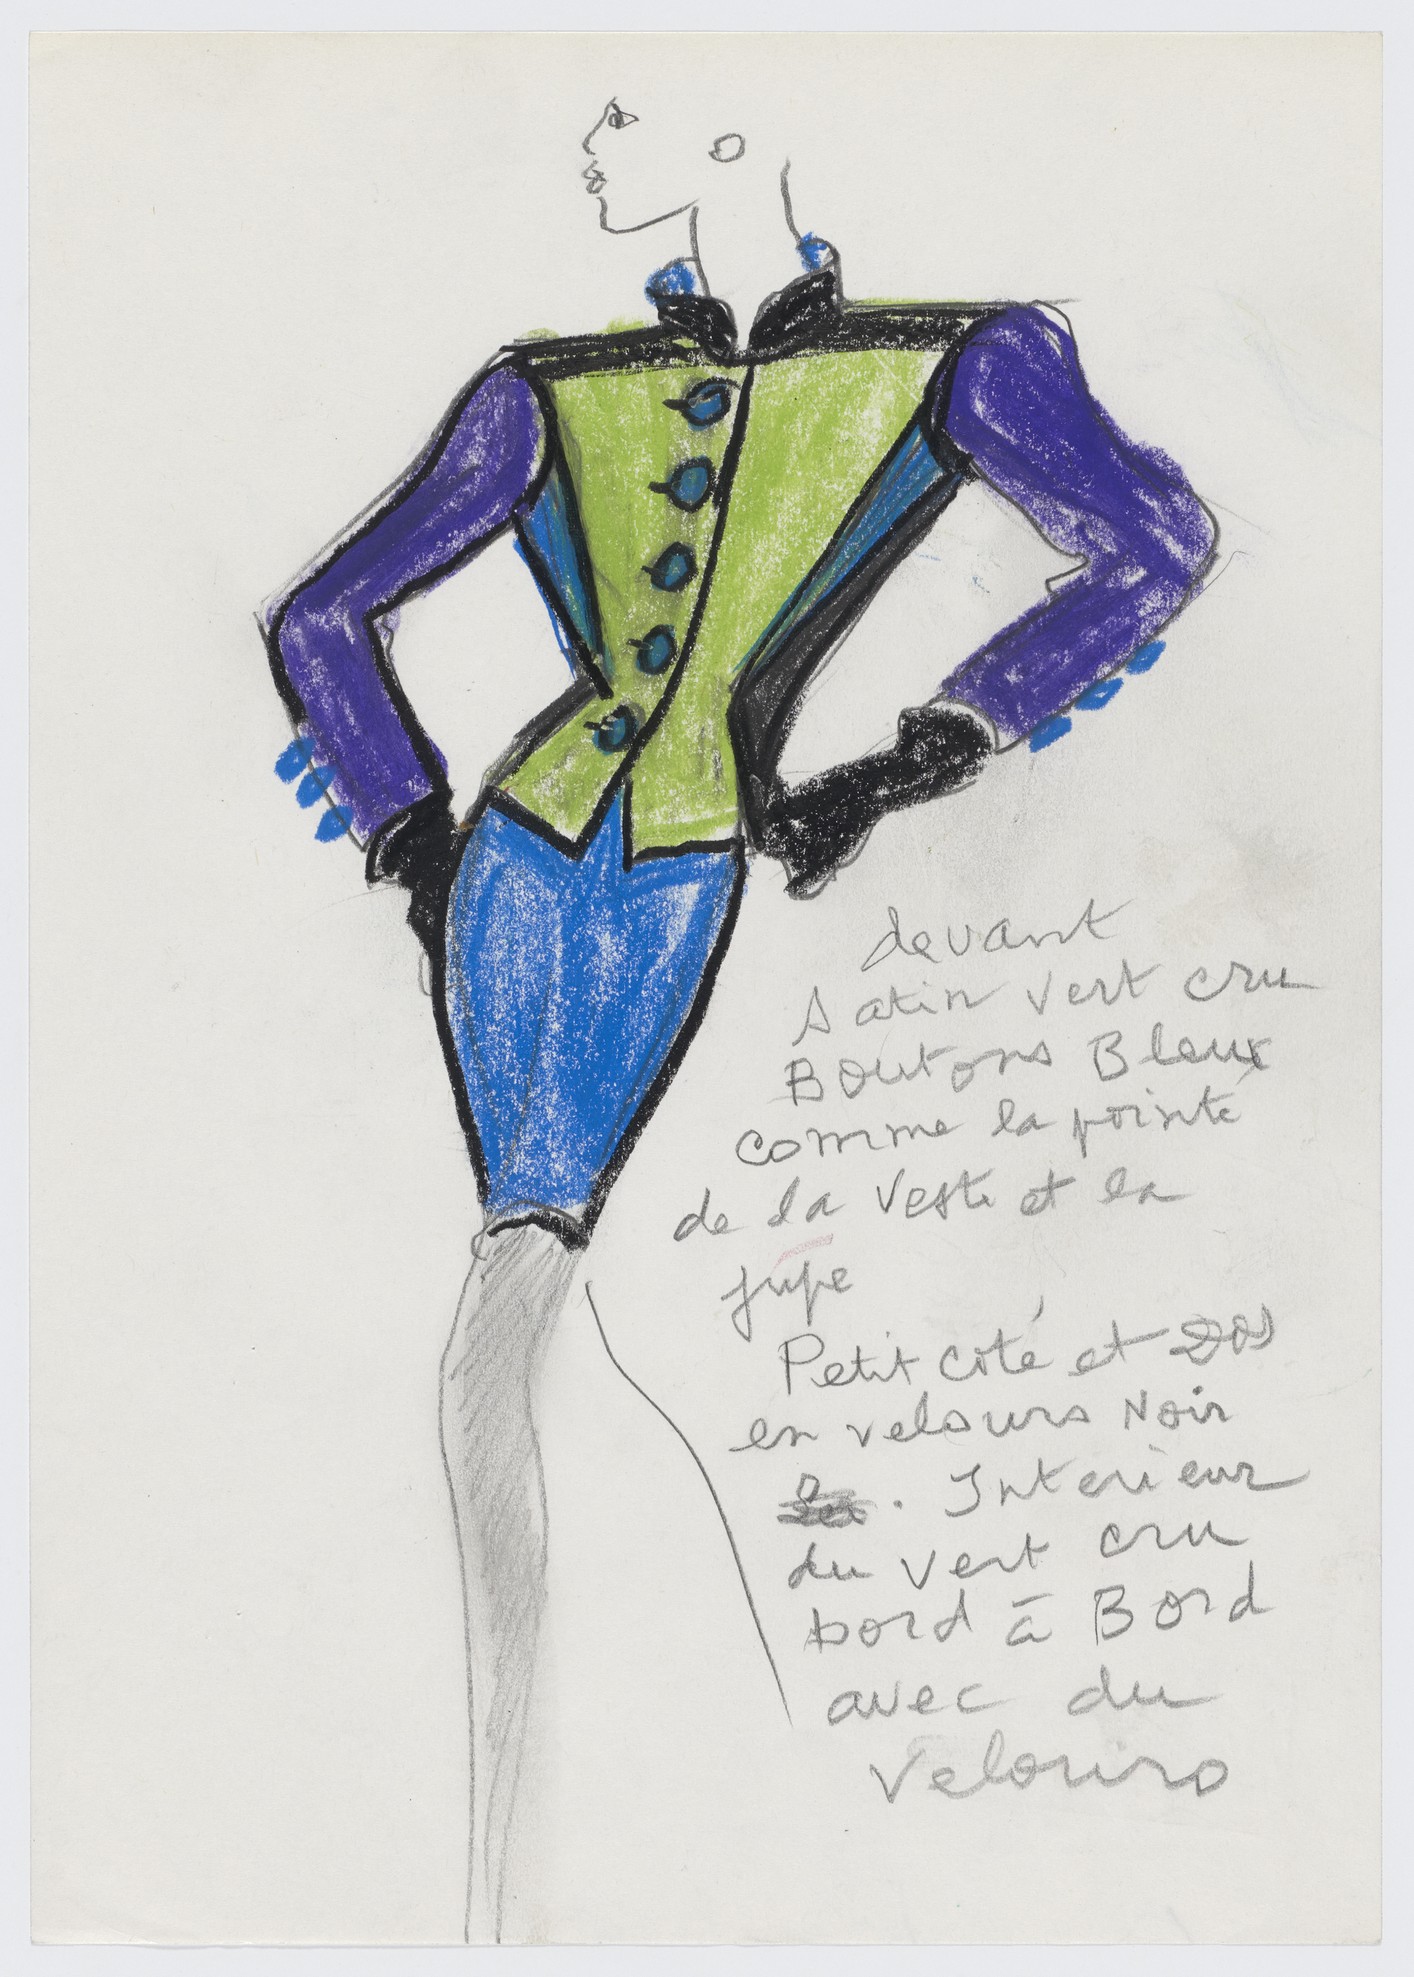 devant
Satin vert cru
Boutons Bleux
comme la pointe
de la veste et la
jupe
Petit côté et Dos
en velours Noir
. Interieur
du vert cru
bord à Bord
avec du
Velours